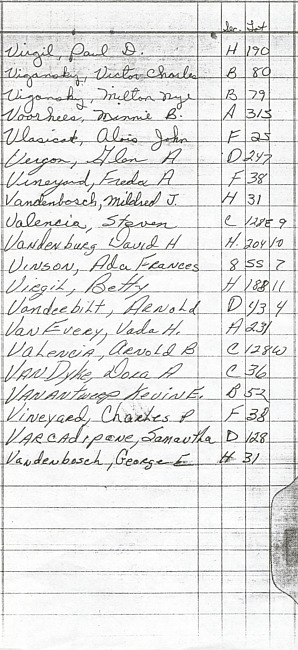 Sec. Lot
Virgil, Paul D. H 190
Vigansky, Victor Charles B 80
Vigansky, Milton Nye B 79
Voorhees, Minnie B. A 315
Vlasicat, Alois John F 25
Vergon, Glen A D 247
Vineyard, Freda A F 38
Vandenbosch, Mildred J. H 31
Valencia, Steven C 128E 9
Vandenburg David H H. 204 10
Vinson, Ada Frances 8 55 7
Virgil, Betty H 188 11
Vanderbilt, Arnold D 43 4
Van Every, Vada H. A 231
Valencia, Arnold B C 128W
Van Dyke, Dora A C 36
VanAntwerp Kevin E. B 52
Vineyard, Charles P F 38
Varcadipane, Samantha D 128
Vandenbosch, George E H 31